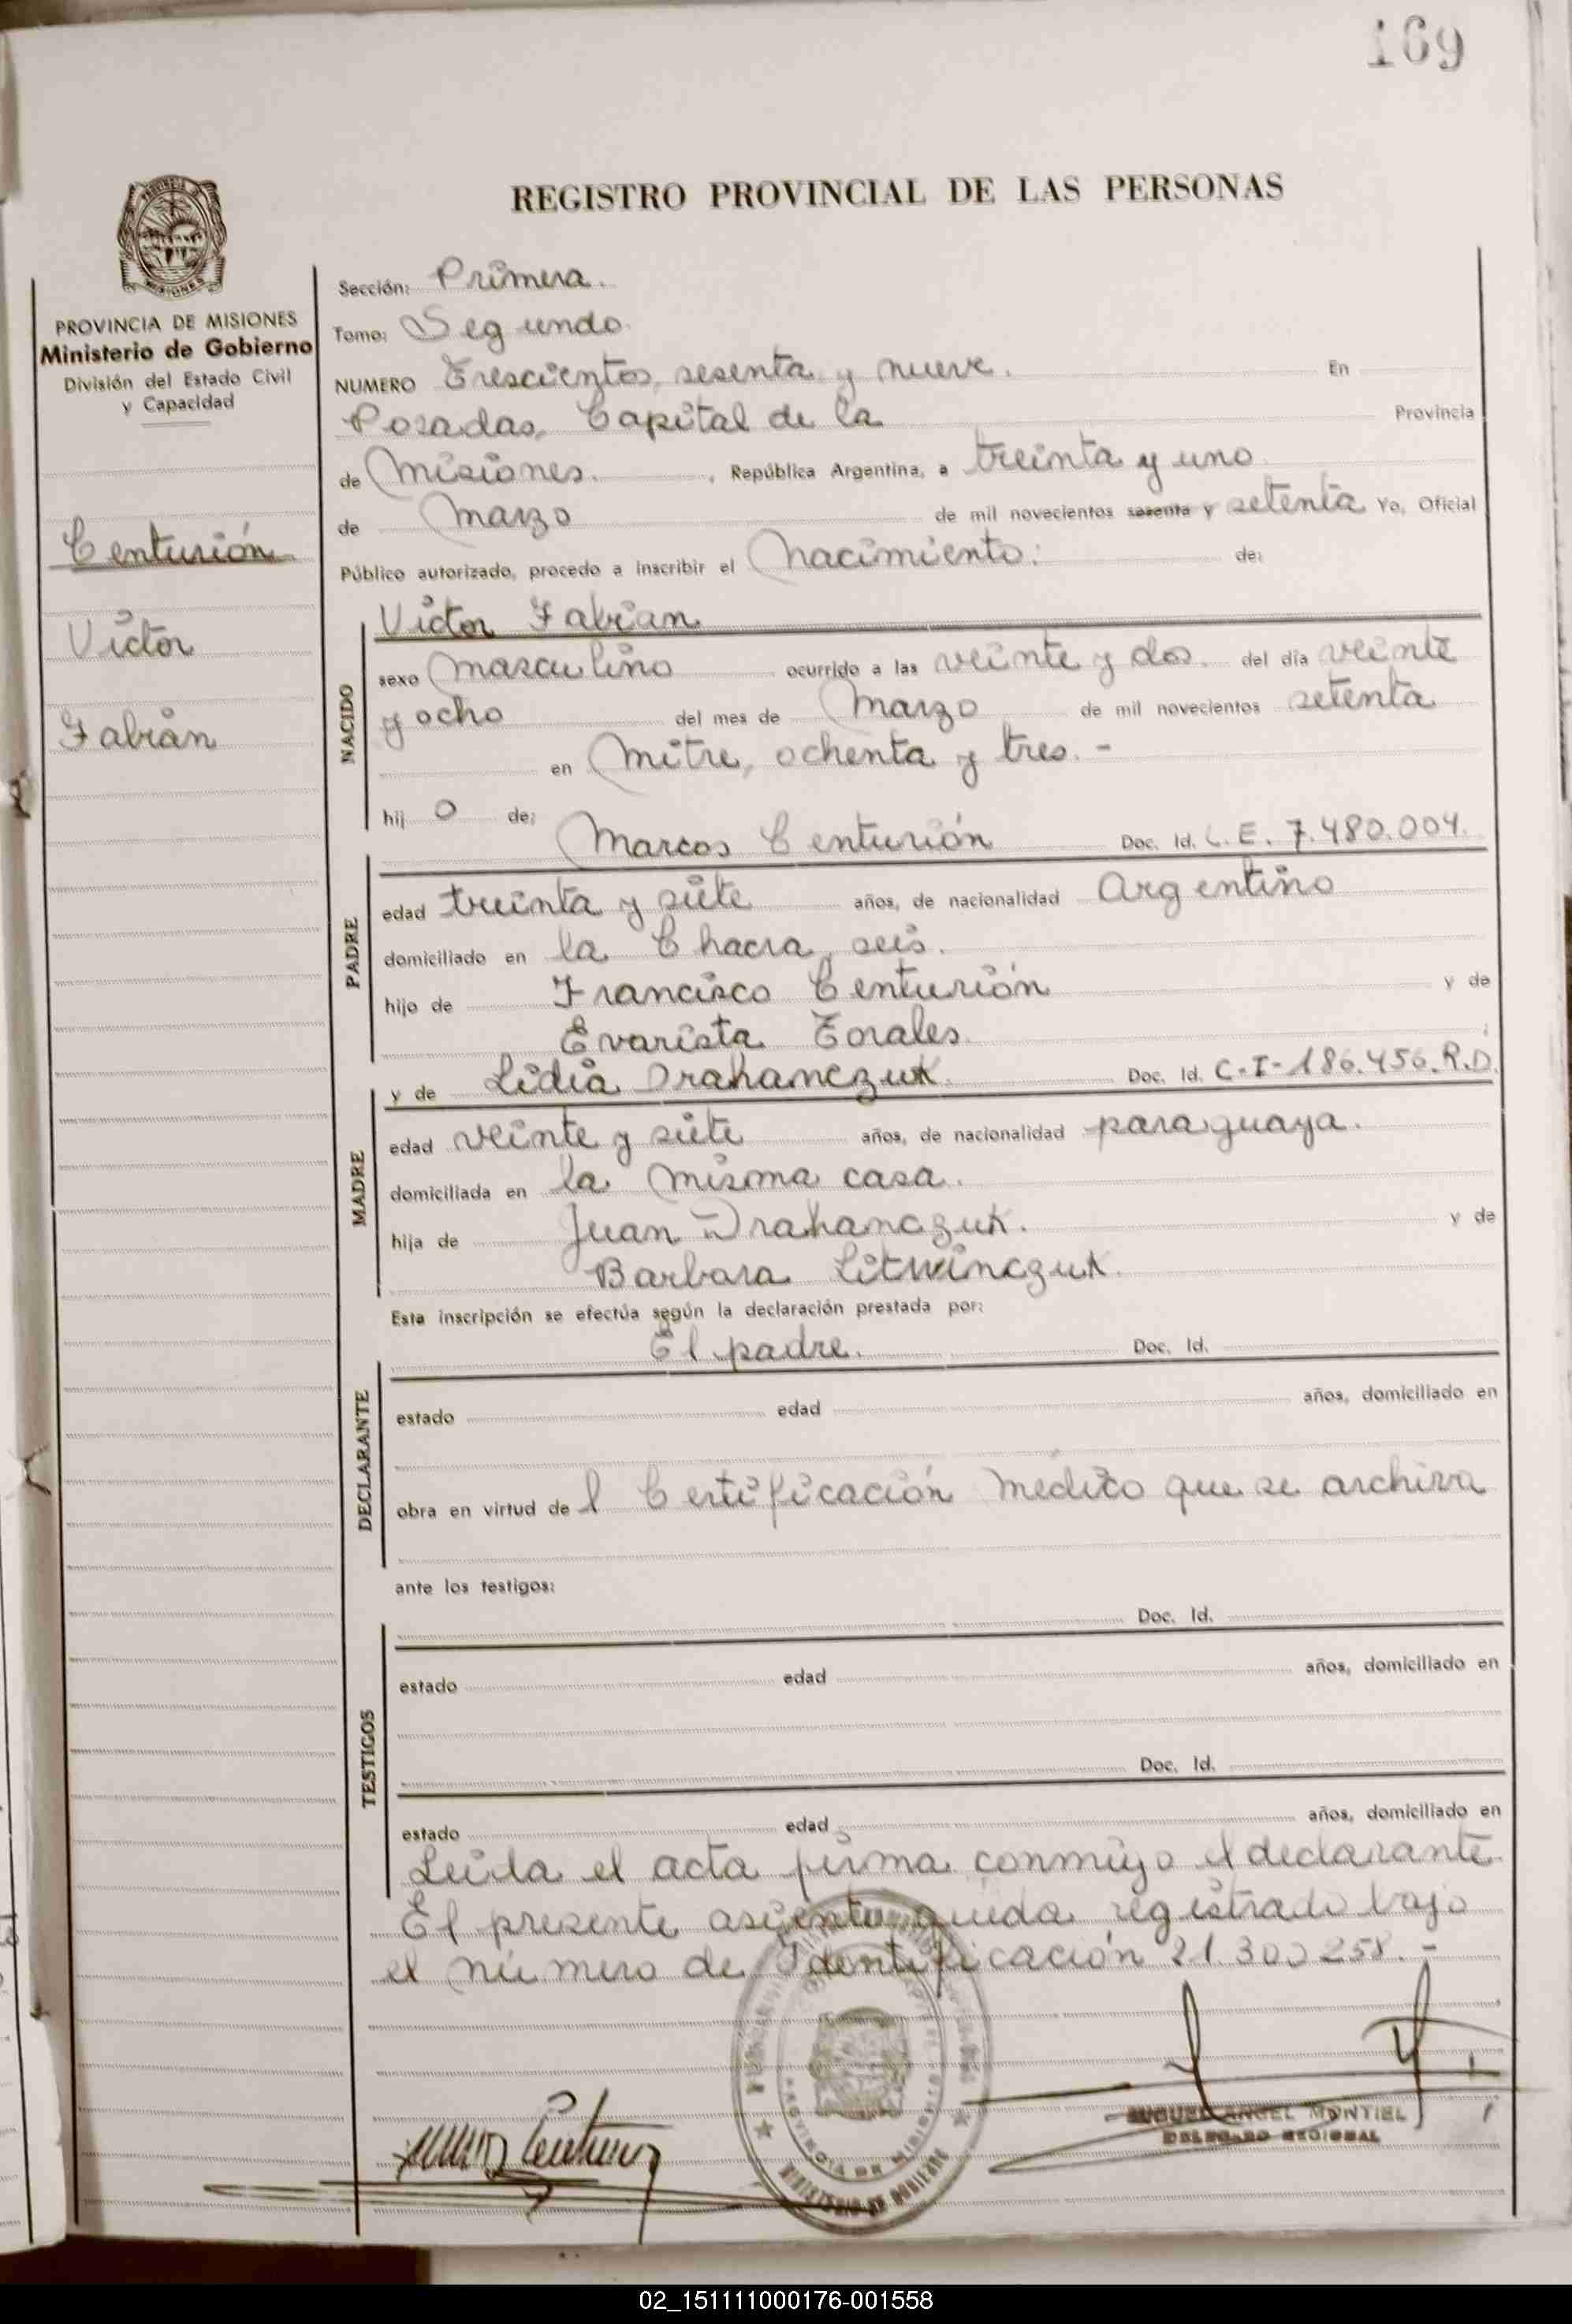 169
REGISTRO PROVINCIAL DE LAS PERSONAS
PROVINCIA DE MISIONES
Ministerio de Gobierno
División del Estado Civil
y Capacidad
Centurión
Victor
Fabián
Sección: Primera.
Tomo: Segundo.
NUMERO Trescientos, sesenta y nueve. En
Posadas, Capital de la Provincia
de Misiones. , República Argentina, a treinta y uno
de Marzo de mil novecientos sesenta y setenta Yo, Oficial
Público autorizado, procedo a inscribir el Nacimiento: de:
NACIDO
Victor Fabian
sexo Masculino ocurrido a las veinte y dos. del día veinte
y ocho del mes de Marzo de mil novecientos setenta
en Mitre, ochenta y tres. -
hij o de:
PADRE
Marcos Centurión Doc. Id. L.E. 7.480.004.
edad treinta y siete años, de nacionalidad Argentino
domiciliado en la Chacra seis.
hijo de Francisco Centurión y de
Evarista Torales.
MADRE
y de Lidia Drahanczuk. Doc. Id. C-I-186.456.R.D.
edad veinte y siete años, de nacionalidad paraguaya.
domiciliada en la misma casa.
hija de Juan Drahanczuk. y de
Barbara Litwinczuk.
Esta inscripción se efectúa según la declaración prestada por:
DECLARANTE
El padre. Doc. Id.
estado edad años, domiciliado en
obra en virtud de l Certificación médico que se archiva
ante los testigos:
TESTIGOS
Doc. Id.
estado edad años, domiciliado en
Doc. Id.
estado edad años, domiciliado en
Leida el acta firma conmigo el declarante
El presente asiento queda registrado bajo
el número de Identificación 21.300258. -
PROVINCIA DE MISIONES
MINISTERIO DE GOBIERNO
MIGUEL ANGEL MONTIEL
DELEGADO REGIONAL
02_151111000176-001558